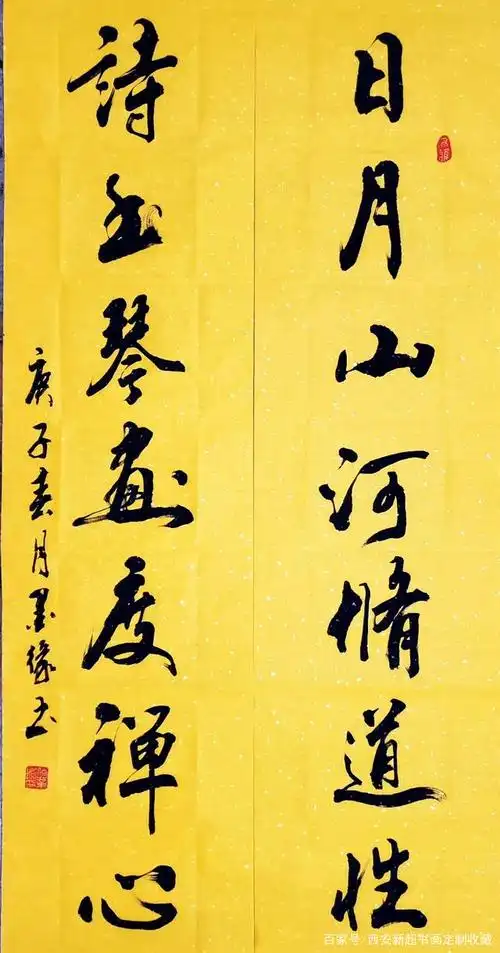 日月山河脩道性
詩書琴畫度禪心
庚子春月墨緣書
百家号/西安新超书画定制收藏